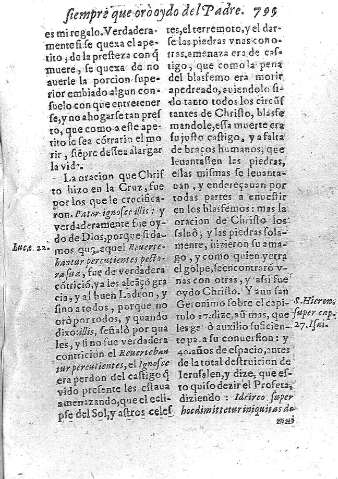 siempre que orò oydo del Padre. 795
es mi regalo. Verdadera-
mente si se quexa el ape-
tito; do la prefiera con q̃
muere, se quexa de no
auerle la porcion super
ior embiado algun con
suelo con que entretener
se, y no ahogarse tan pres
to, que como a este ape-
tito le sea cõrarin el mo
rir, siẽpre dessea alargar
la vida.
La oracion que Christ
to hizo en la Cruz, fue
por los que le crucifica
ron. Pater ignosce illis: y
verdaderamente fue oy-
do de Dios, porque si da-
mos que aquel Reuerte-
Luc. 22.
bantur percutientes pecto-
ra sua, fue de verdadera
cõtriciõ, ya les alcãçò gra
cia, y al buen Ladron, y
sino a todos, porque no
orò por todos, y quando
dixo: illis, señalò por qua
les, y si no fue verdadera
contricion el Reuerteban
tur percutientes, el Ignosce
era perdon del castigo q̃
vido presente les estaua
amenazando, que el ecli-
pse del Sol, y astros celes
tes, el terremoto, y el dar-
se las piedras vnas con o-
tras, amenaza era de cas-
tigo, que como la pena
del blasfemo era morir
apedreado, auiendolo si
do tanto todos los circũs
tantes de Christo, blasfe
mandole, essa muerte era
su justo castigo, y a falta
de braços humanos, que
leuantassen las piedras,
ellas mismas se leuanta
uan, y endereçauan por
todas partes a enuestir
en los blasfemos: mas la
oracion de Christo los
saluò, y las piedras solamen-
te hizieron su ama-
go, y como quien yerra
el golpe, se encontrarõ v
nas con otras, y assi fue
oydo Christo. Y aun san
Geronimo sobre el capi-
tulo 27. dize, añ mas, que
S. Hieron.
super cap.
27. Isai.
les dio auxilio suficien-
te pa su conuersion: y
40. años de espacio, antes
de la total destruicion de
Ierusalen, y dize, que es-
to quiso dezir el Profeta,
diziendo: Idcirco super
hoc dimittetur iniquitas do-